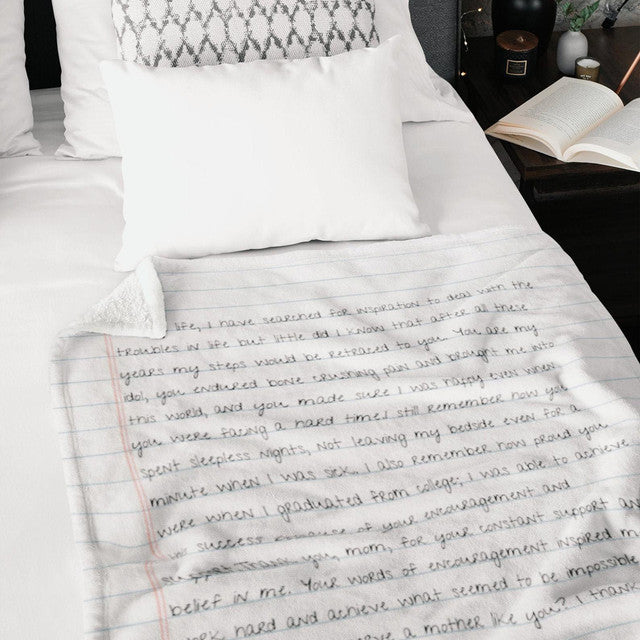 life, I have searched for inspiration to deal with the
troubles in life but little did I know that after all these
years my steps would be retraced to you. You are my
idol, you endured bone crushing pain and brought me into
this world, and you made sure I was happy even when
you were facing a hard time! Still remember how you
spent sleepless nights, not leaving my bedside even for a
minute when I was sick. I also remember how proud you
were when I graduated from college; I was able to achieve
success because of your encouragement and
you, mom, for your constant support and
belief in me. Your words of encouragement inspired m
work hard and achieve what seemed to be impossible
a mother like you? I thank